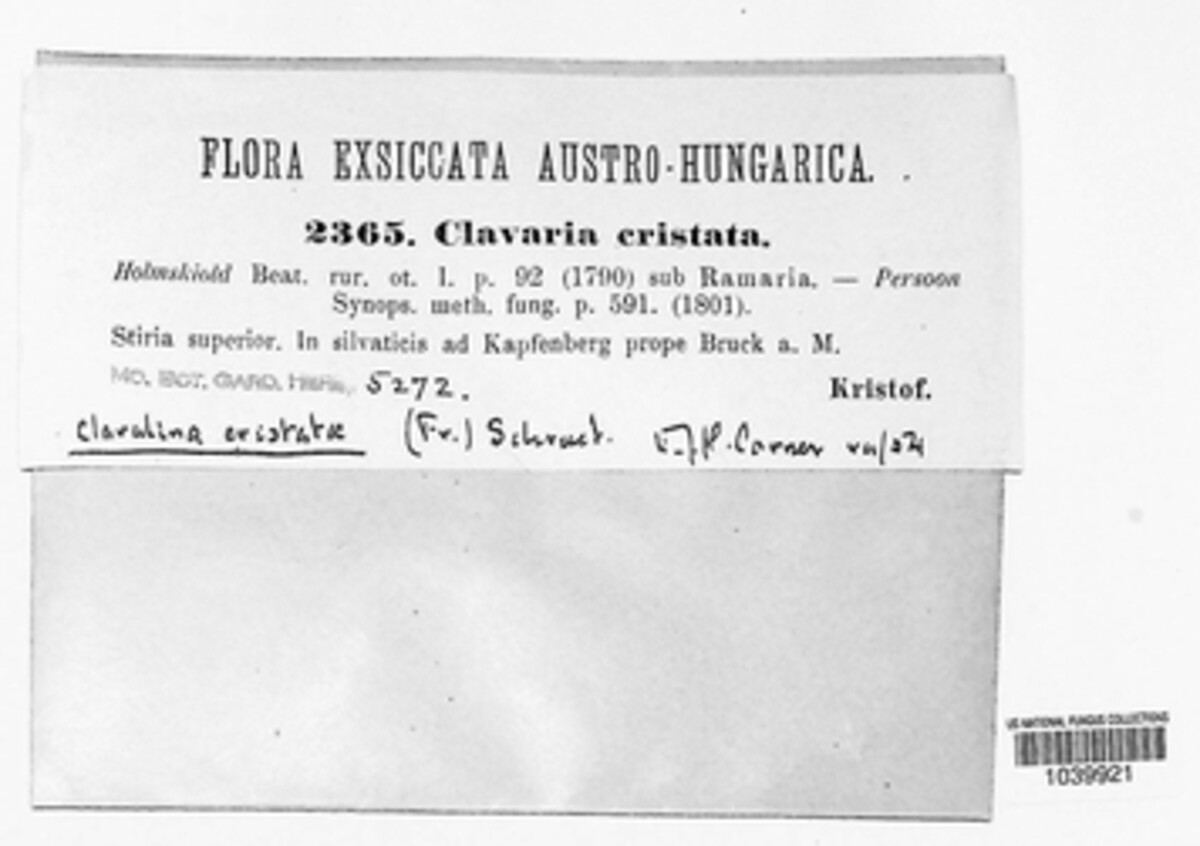 FLORA EXSICCATA AUSTRO-HUNGARICA.
2365. Clavaria cristata.
Holmskiold Beat. rur. ot. I. p. 92 (1790) sub Ramaria. — Persoon
Synops. meth. fung. p. 591. (1801).
Stiria superior. In silvaticis ad Kapfenberg prope Bruck a. M.
MO. BOT. GARD. HERB. 5272. Kristof.
Clavulina cristata (Fr.) Schroet. E.J.H. Corner
US NATIONAL FUNGUS COLLECTIONS
1039921